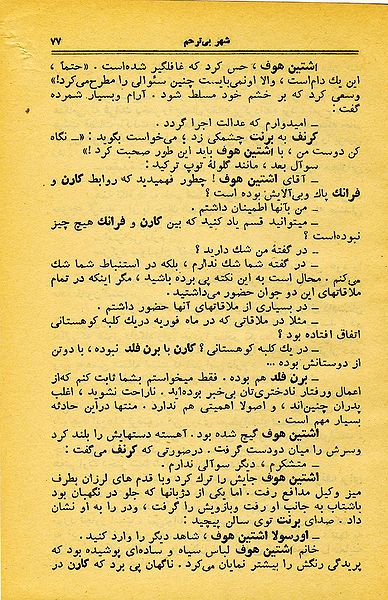 شهر بی‌ترحم ۷۷
اشتین هوف ، حس کرد که غافلگیر شده‌است . «حتماً ،
این یك دام‌است ، والا اونمی‌بایست چنین سئوالی را مطرح‌می‌کرد!»
وسعی کرد که بر خشم خود مسلط شود . آرام وبسیار شمرده
گفت :
ـ امیدوارم که عدالت اجرا گردد .
کرنف به برنت چشمکی زد ، می‌خواست بگوید : «ـ نگاه
کن دوست من ، با اشتین هوف باید این طور صحبت کرد !»
سوآل بعد ، مانند گلولهٔ توپ ترکید :
ـ آقای اشتین هوف ! چطور فهمیدید که روابط کارن و
فرانك پاك وبی‌آلایش بوده است ؟
ـ من بآنها اطمینان داشتم .
ـ میتوانید قسم یاد کنید که بین کارن و فرانك هیچ چیز
نبوده‌است ؟
ـ در گفتهٔ من شك دارید ؟
ـ در گفته شما شك ندارم ، بلکه در استنباط شما شك
می‌کنم . محال است به این نکته پی برده باشید ، مگر اینکه در تمام
ملاقاتهای این دو جوان حضور می‌داشتید .
ـ در بسیاری از ملاقاتهای آنها حضور داشتم .
ـ مثلا در ملاقاتی که در ماه فوریه دریك کلبه کوهستانی
اتفاق افتاده بود ؟
ـ در یك کلبه کوهستانی ؟ کارن با برن فلد نبوده ، با دوتن
از دوستانش بوده ...
ـ برن فلد هم بوده . فقط میخواستم بشما ثابت کنم که‌از
اعمال ورفتار نادختری‌تان بی‌خبر بوده‌اید . ناراحت نشوید ، اغلب
پدران چنین‌اند ، و اصولا اهمیتی هم ندارد . منتها دراین حادثه
بسیار مهم است .
اشتین هوف گیج شده بود . آهسته دستهایش را بلند کرد
وسرش را میان دودست گرفت . درصورتی که کرنف می‌گفت :
ـ متشکرم ، دیگر سوآلی ندارم .
اشتین هوف جایش را ترك کرد وبا قدم های لرزان بطرف
میز وکیل مدافع رفت . اما یکی از دژبانها که جلو در نگهبان بود
باشتاب به جانب او رفت وبازویش را گرفت ، ودر را به او نشان
داد . صدای برنت توی سالن پیچید :
ـ اورسولا اشتین هوف ، شاهد دیگر را وارد کنید .
خانم اشتین هوف لباس سیاه و ساده‌ای پوشیده بود که
پریدگی رنگش را بیشتر نمایان می‌کرد . ناگهان پی برد که کارن در